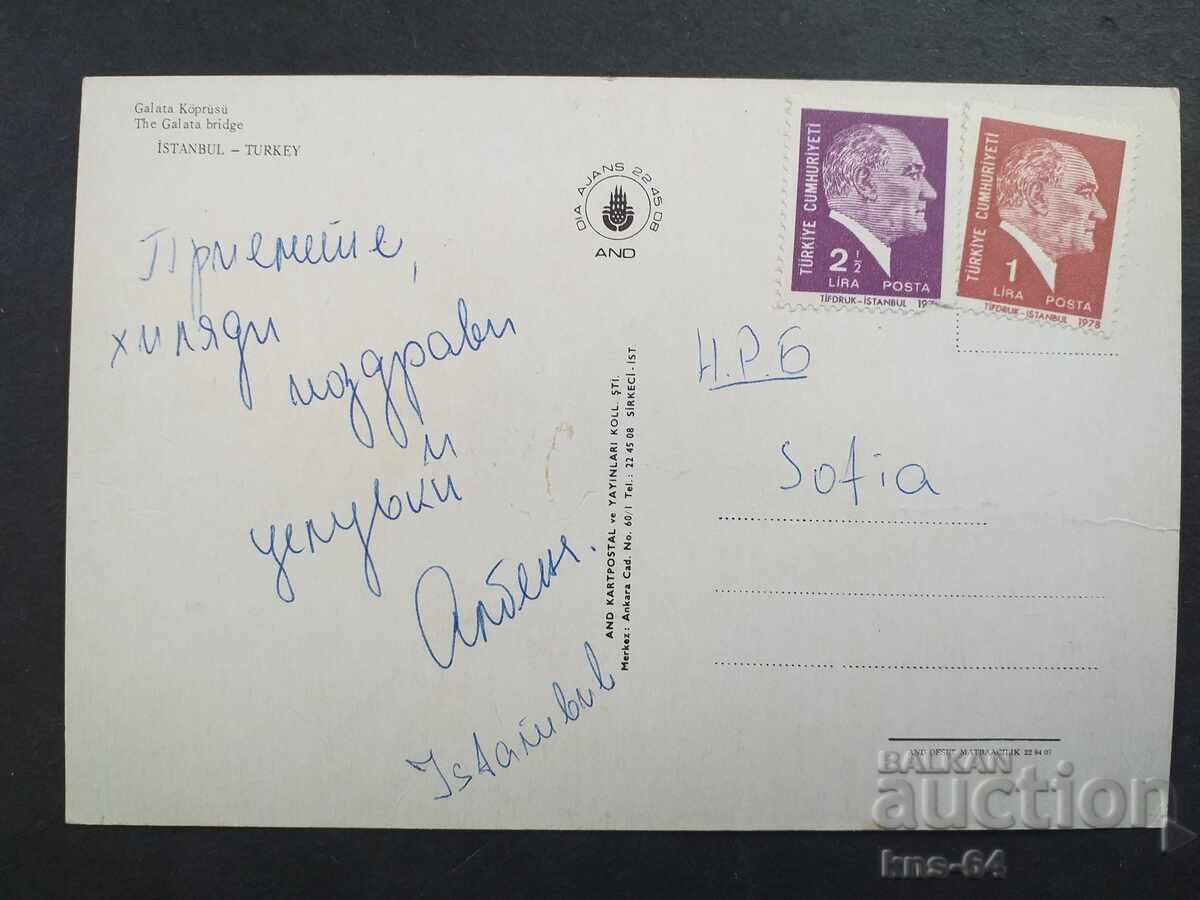 Galata Köprüsü
The Galata bridge
İSTANBUL – TURKEY
Приемете,
хиляди
поздрави
и
целувки
Istambul
DIA AJANS 22 45 08
AND
AND KARTPOSTAL ve YAYINLARI KOLL. ŞTİ.
Merkez: Ankara Cad. No. 60/1 Tel.: 22 45 08 SİRKECİ-İST
TÜRKİYE CUMHURİYETİ
2 1/2
LİRA POSTA
TİFDRUK-İSTANBUL
TÜRKİYE CUMHURİYETİ
1
LİRA POSTA
TİFDRUK-İSTANBUL 1978
Н.Р.Б
Sofia
AND OFSET MATBAACILIK 22 94 07
BALKAN
auction
kns-64